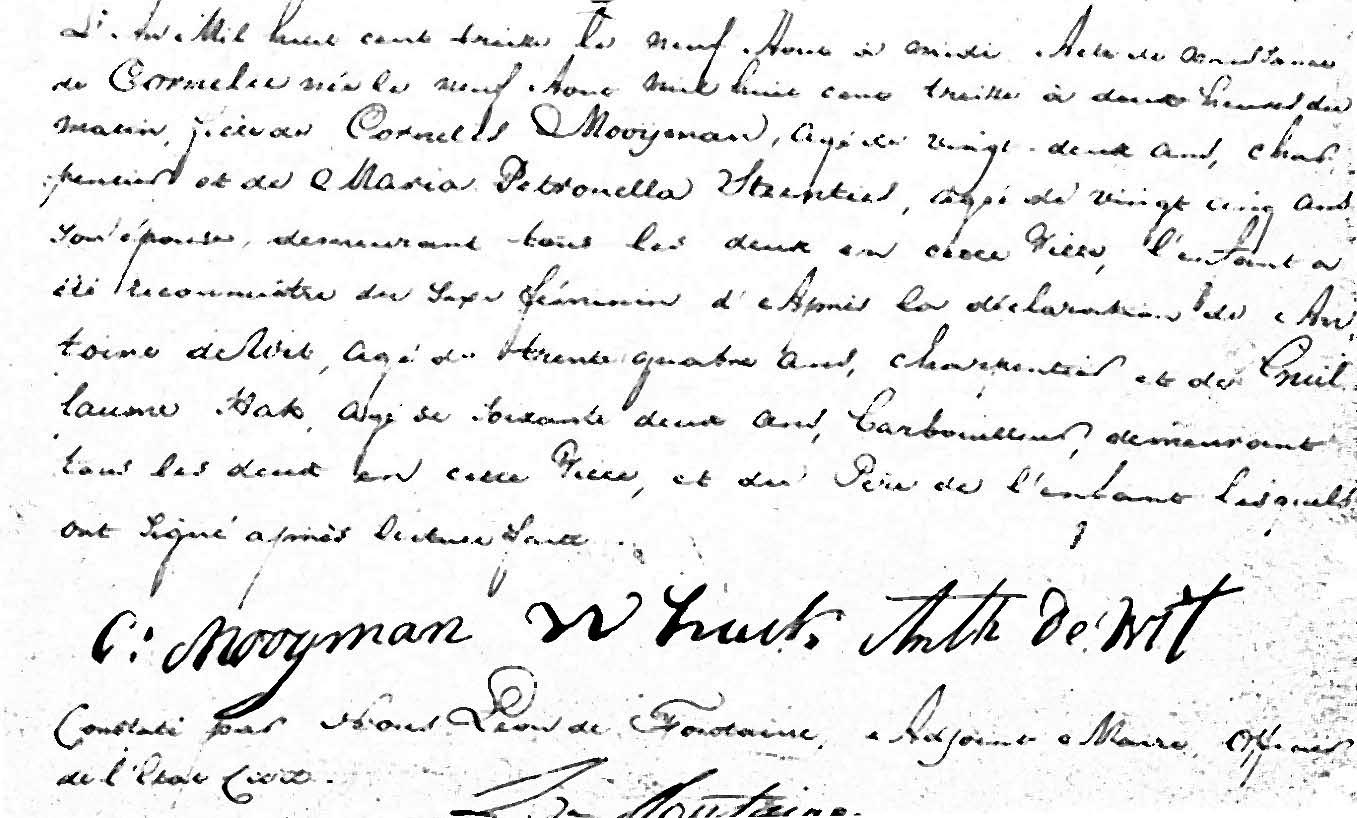 L'An Mil huit cent treize le neuf Aout à midi Acte de naissance
de Cornelie née le neuf Aout mil huit cent treize à deux heures du
matin, fille de Cornelis Mooyman, agé de vingt-deux ans, char,
pentier et de Maria Petronella, agée de vingt cinq ans
son épouse, demeurant tous les deux en cette Ville, l'enfant a
été reconnu être du sexe féminin d'Après la déclaration de An,
toine de Wit, agé de trente quatre ans, charpentier et de Guil,
laume Hak, agé de soixante deux ans, demeurant
tous les deux en cette Ville, et du Père de l'enfant lesquels
ont signé après lecture faite.
C: Mooyman W Anth De Wit
Constaté par Nous Léon de Fontaine, Adjoint Maire, Officier
de l'Etat Civil.
Fontaine